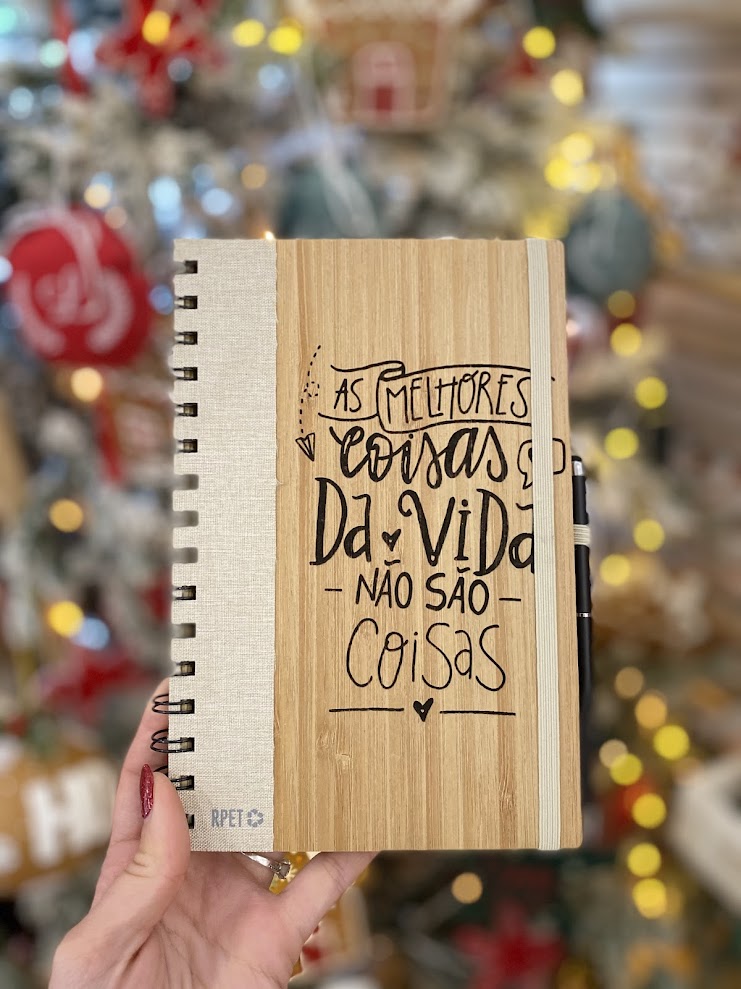 AS MELHORES
coisas
Da Vida
NÃO SÃO
Coisas
RPET